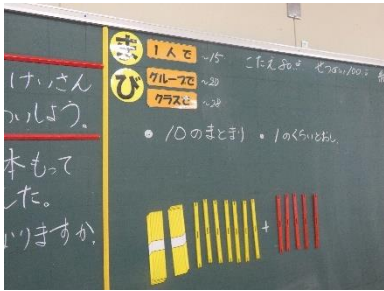 けいさん
いしよう。
本もって
た。
りますか。
ま
び
1人で ~15
グループで ~20
クラスで ~28
こたえ
10のまとまり ・1のくらいどおし
+